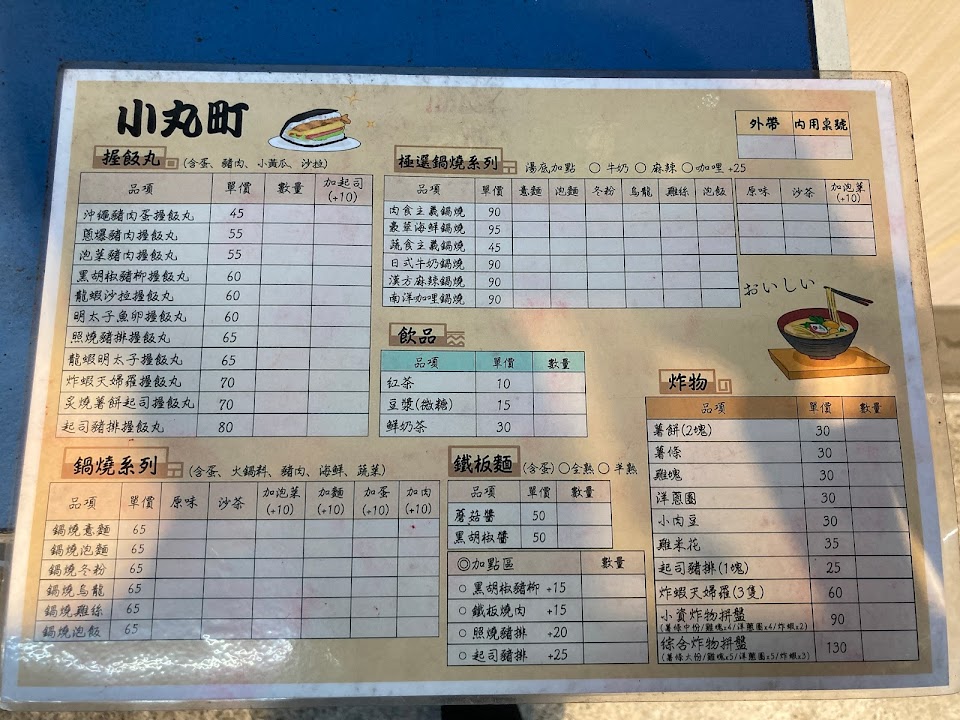 小丸町
外帶 內用桌號
握飯丸 (含蛋、豬肉、小黃瓜、沙拉)
品項 單價 數量 加起司(+10)
沖繩豬肉蛋握飯丸 45
蔥爆豬肉握飯丸 55
泡菜豬肉握飯丸 55
黑胡椒豬柳握飯丸 60
龍蝦沙拉握飯丸 60
明太子魚卵握飯丸 60
照燒豬排握飯丸 65
龍蝦明太子握飯丸 65
炸蝦天婦羅握飯丸 70
炙燒薯餅起司握飯丸 70
起司豬排握飯丸 80
極選鍋燒系列 湯底加點 ○牛奶 ○麻辣 ○咖哩 +25
品項 單價 意麵 泡麵 冬粉 烏龍 雞絲 泡飯 原味 沙茶 加泡菜(+10)
肉食主義鍋燒 90
豪華海鮮鍋燒 95
蔬食主義鍋燒 45
日式牛奶鍋燒 90
漢方麻辣鍋燒 90
南洋咖哩鍋燒 90
おいしい
飲品
品項 單價 數量
紅茶 10
豆漿(微糖) 15
鮮奶茶 30
炸物
品項 單價 數量
薯餅(2塊) 30
薯條 30
雞塊 30
洋蔥圈 30
小肉豆 30
雞米花 35
起司豬排(1塊) 25
炸蝦天婦羅(3隻) 60
小資炸物拼盤 90
(薯條中份/雞塊x4/洋蔥圈x4/炸蝦x2)
綜合炸物拼盤 130
(薯條大份/雞塊x5/洋蔥圈x5/炸蝦x3)
鍋燒系列 (含蛋、火鍋料、豬肉、海鮮、蔬菜)
品項 單價 原味 沙茶 加泡菜(+10) 加麵(+10) 加蛋(+10) 加肉(+10)
鍋燒意麵 65
鍋燒泡麵 65
鍋燒冬粉 65
鍋燒烏龍 65
鍋燒雞絲 65
鍋燒泡飯 65
鐵板麵 (含蛋) ○全熟 ○半熟
品項 單價 數量
蘑菇醬 50
黑胡椒醬 50
◎加點區 數量
○黑胡椒豬柳 +15
○鐵板燒肉 +15
○照燒豬排 +20
○起司豬排 +25